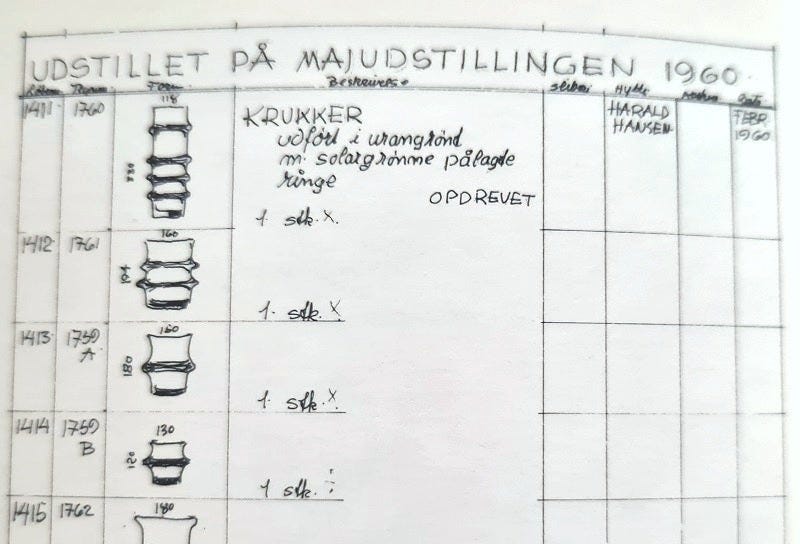 UDSTILLET PÅ MAJUDSTILLINGEN 1960
Form Hytte Dato
1411 1760 118 KRUKKER HARALD FEBR.
udført i urangrønt HANSEN 1960
m. solargrønne pålagte
ringe
OPDREVET
1 stk. X.
1412 1761 160
194
1. stk. X
1413 1759 A 150
180
1. stk. X.
1414 1759 B 130
120
1 stk.
1415 1762 180